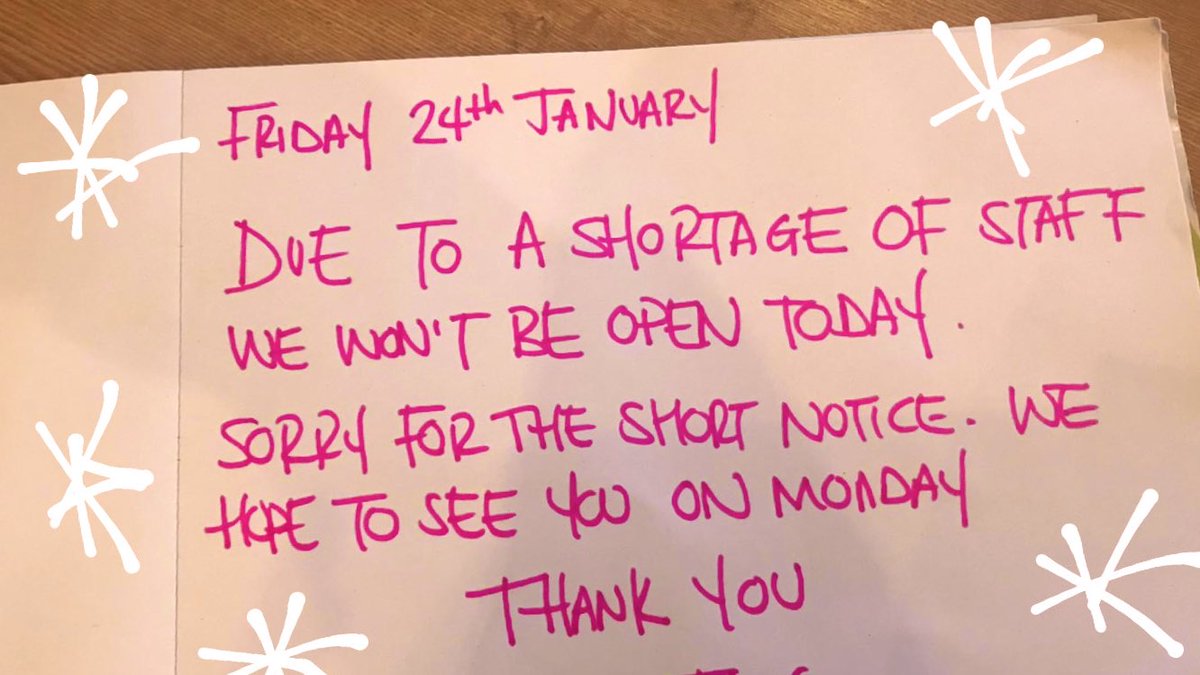 FRIDAY 24th JANUARY
DUE TO A SHORTAGE OF STAFF
WE WON'T BE OPEN TODAY.
SORRY FOR THE SHORT NOTICE. WE
HOPE TO SEE YOU ON MONDAY
THANK YOU